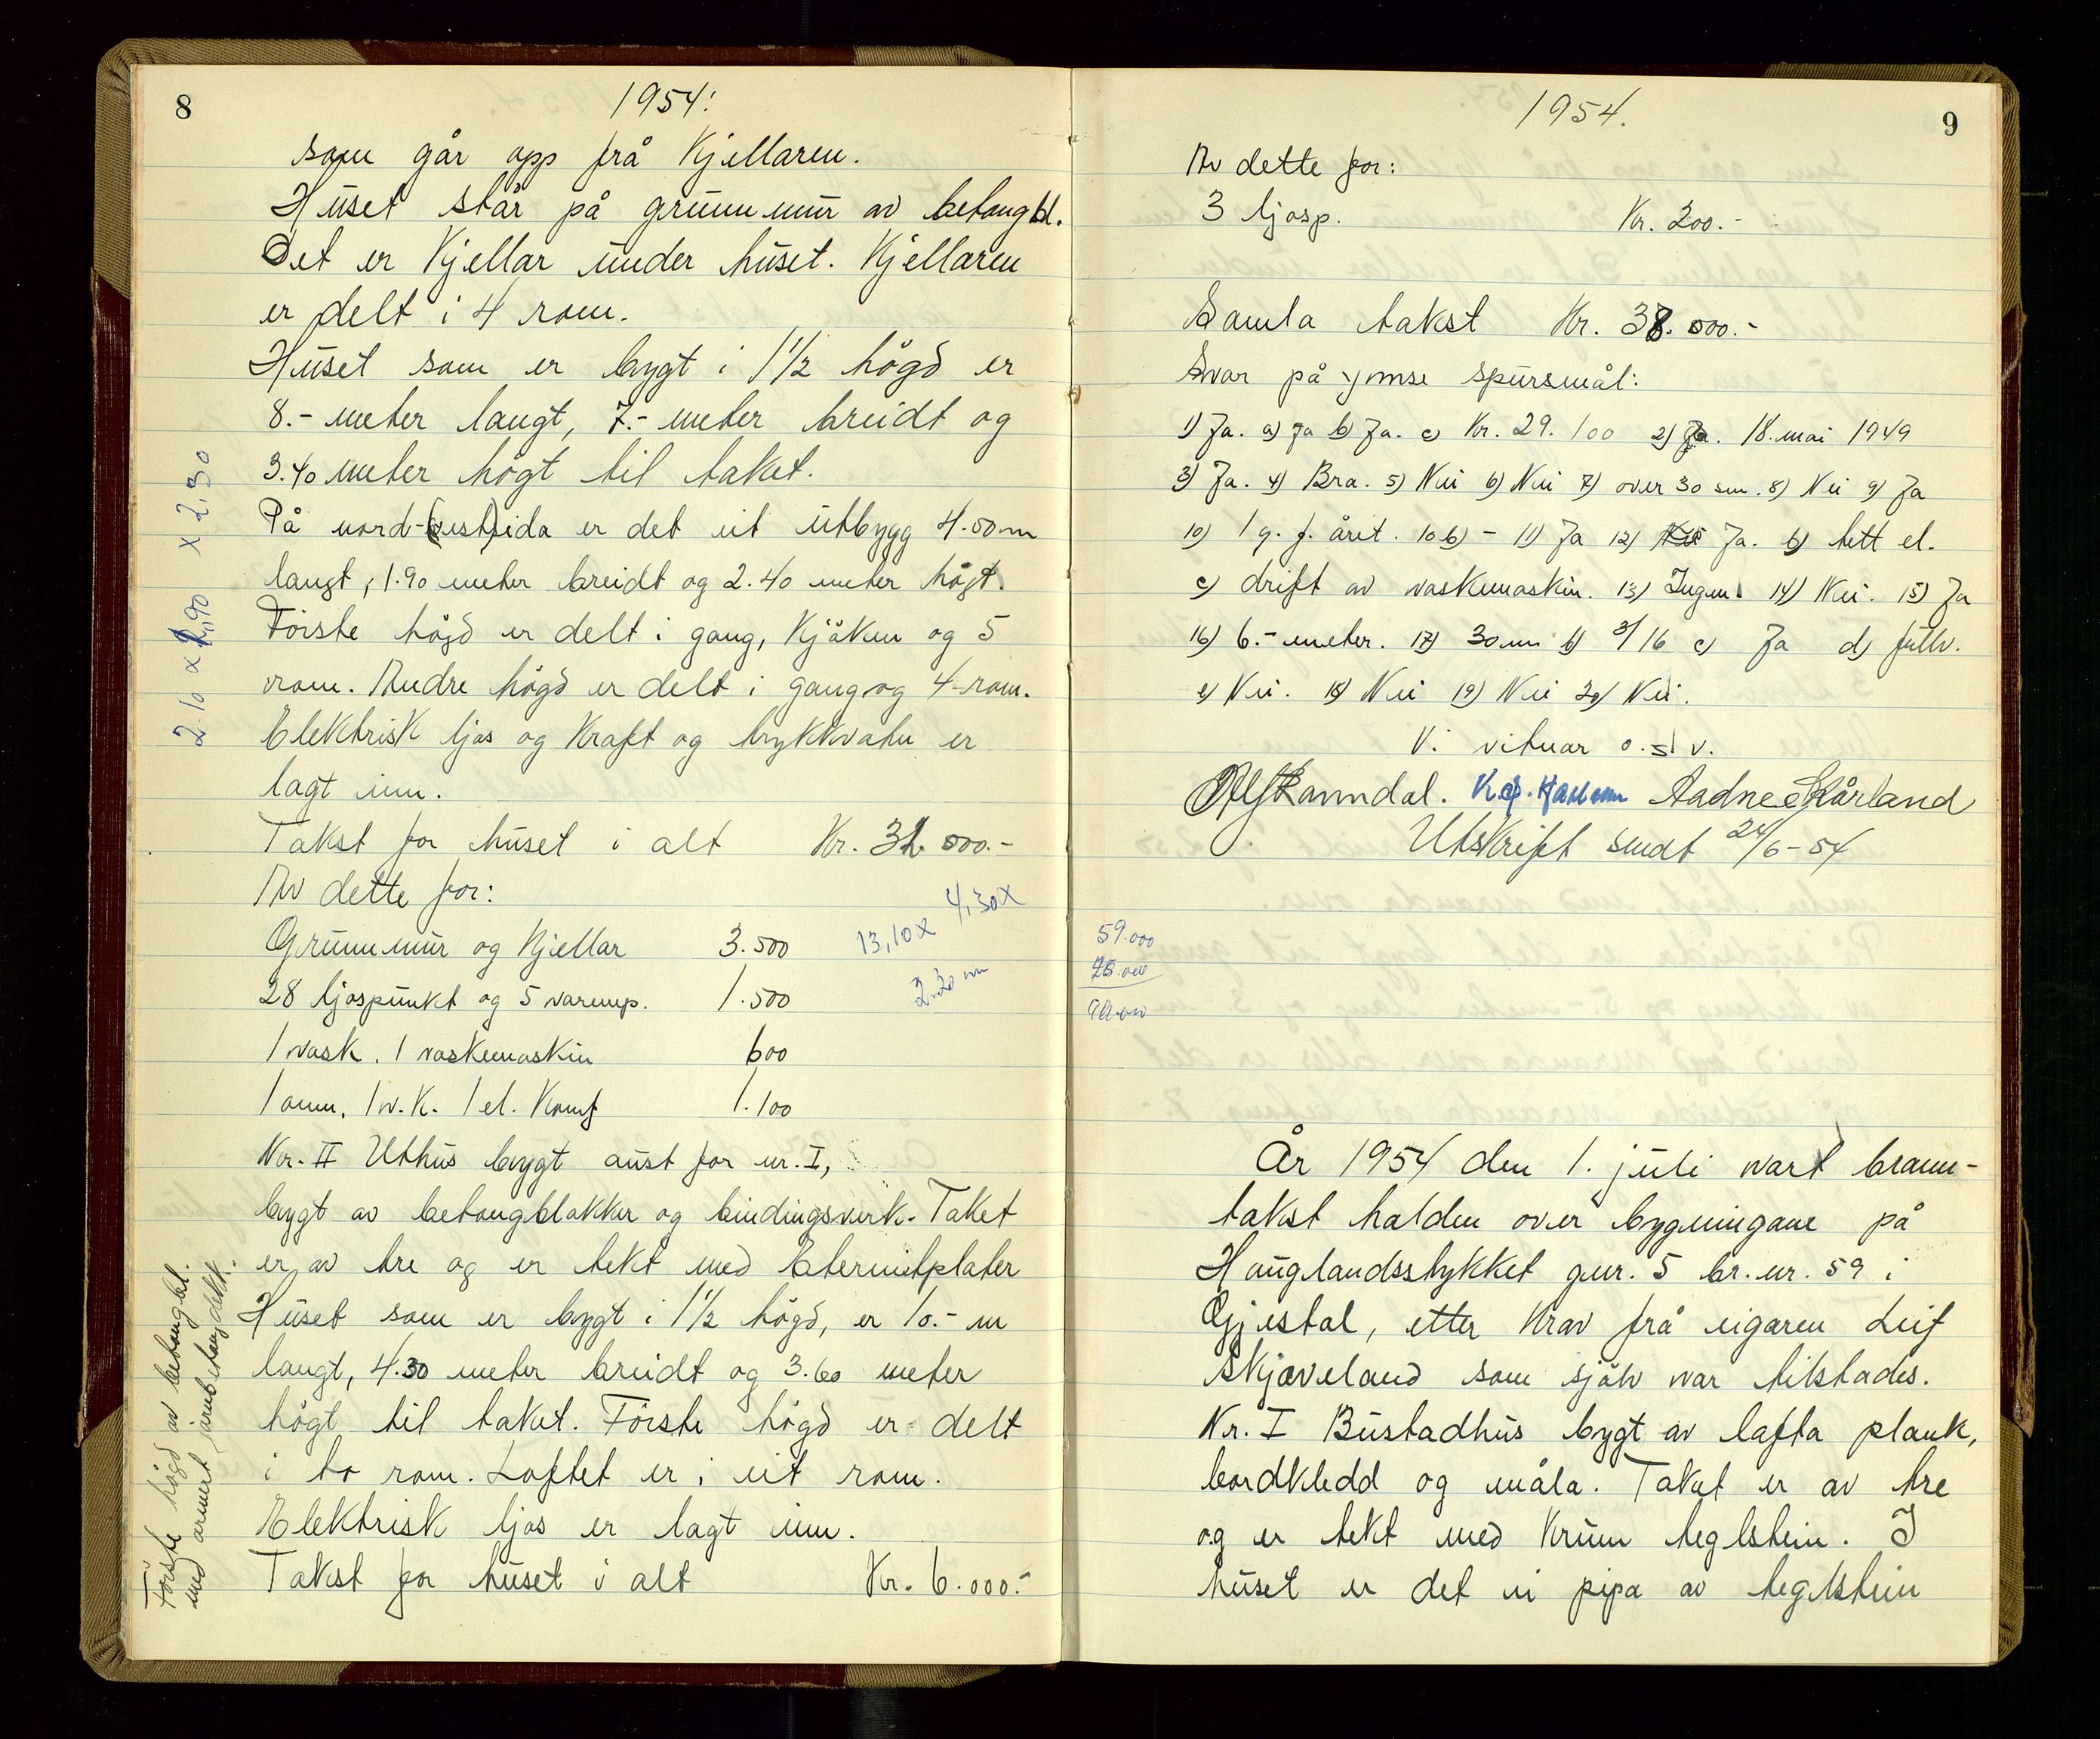 8
1954.
som går opp frå Kjellaren.
Huset står på grunnmur av betongbl.
Det er Kjellar under huset. Kjellaren
er delt i 4 rom.
Huset som er bygt i 1½ högd er
8.- meter langt, 7.- meter breidt og
3.40 meter högt til taket.
På nord-(vest)sida er det eit utbygg 4.50 m
langt, 1.90 meter breidt og 2.40 meter högt.
Förste högd er delt i gang, Kjöken og 5
rom. Andre högd er delt i gang og 4 rom.
Elektrisk ljos og Kraft og trykkvatn er
lagt inn.
Takst for huset i alt Kr. 32.000.-
Av dette for:
Grunnmur og Kjellar 3.500
28 ljospunkt og 5 varmep. 1.500
1 vask. 1 vaskemaskin 600
1 omn. 1 v.K. 1 el. Komf 1.100
Nr. II Uthus bygt aust for nr. I,
bygt av betongblokker og bindingsverk. Taket
er av tre og er tekt med Eternitplater
Huset som er bygt i 1½ högd, er 10.- m
langt, 4.30 meter breidt og 3.60 meter
högt til taket. Förste högd er delt
i to rom. Loftet er i eit rom.
Elektrisk ljos er lagt inn.
Takst for huset i alt Kr. 6.000.-
2.10 x 1,90 x 2,30
13,10 x 4,30 x
2.20 m
Förste högd av betongbl.
med armert jarnbetongdekk.
9
1954.
Av dette for:
3 ljosp. Kr. 200.-
Samla takst Kr. 38.000.-
Svar på ymse spursmål:
1) Ja. a) Ja b) Ja. c) Kr. 29.100 2) Ja. 18. mai 1949
3) Ja. 4) Bra. 5) Nei 6) Nei 7) over 30 sm. 8) Nei 9) Ja
10) 1 g. f. året. 10 b) - 11) Ja 12) Ja. b) tett el.
c) drift av vaskemaskin. 13) Ingen 14) Nei. 15) Ja
16) 6.- meter. 17) 30 m b) 3/16 c) Ja d) fullv.
e) Nei. 18) Nei 19) Nei 20) Nei.
Vi vitnar o.s.v.
Ramndal. Aadne Skårland
Utskrift sendt 24/6-54
59.000
75.000
År 1954 den 1. juli vart brann-
takst halden over bygningane på
Hauglandsstykket gnr. 5 br. nr. 59 i
Gjestal, etter Krav frå eigaren Leif
Skjæveland som sjölv var tilstades.
Nr. I Bustadhus bygt av lafta plank,
bordkledd og måla. Taket er av tre
og er tekt med Krum teglstein. I
huset er det ei pipa av teglstein